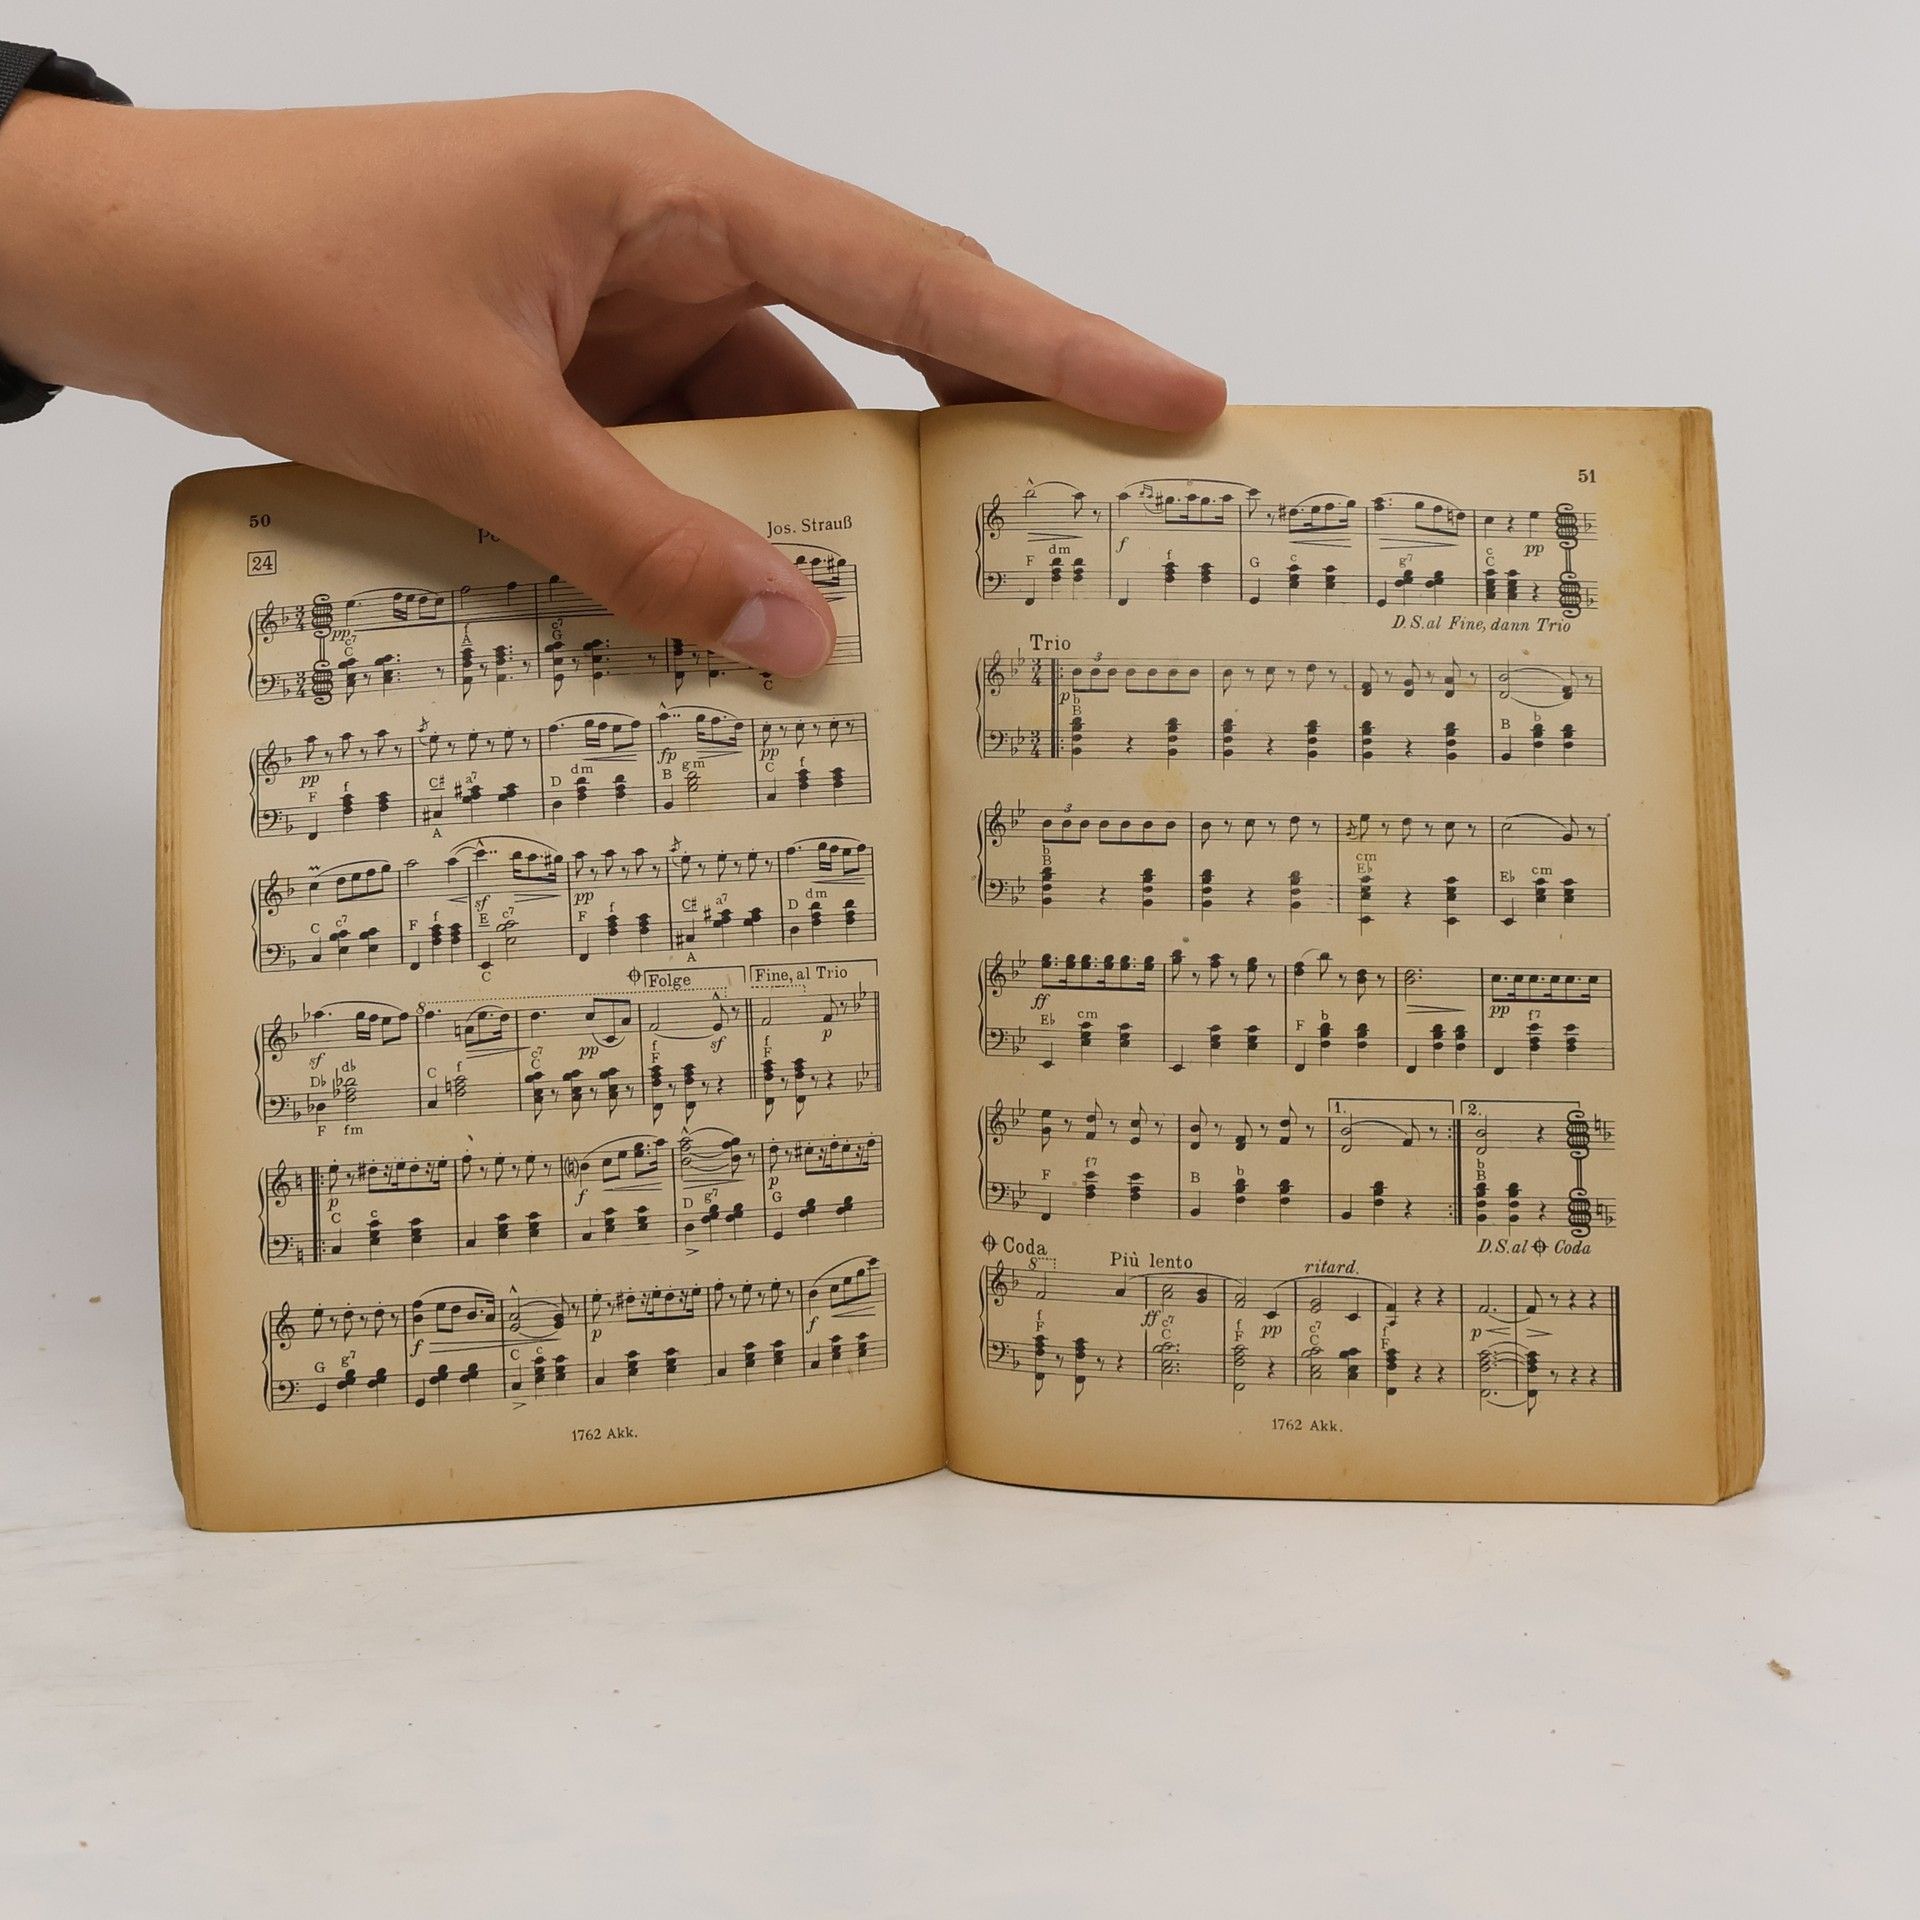 50
Jos. Strauß
24
3 4
pp
c7
C
f
A
c7
G
3 4
C
pp
fp
pp
F f C♯ a7 D dm B gm C f
A
sf
pp
C c7 F f E c7 F f C♯ a7 D dm
C A
Folge Fine, al Trio
8
sf pp sf p
D♭ d♭ C f c7 C f F f F
F fm
p f p
C c D g7 G
f p f
G g7 C c
1762 Akk.
51
f pp
F dm f G c g7 c C
D. S. al Fine, dann Trio
Trio
3
3 4
p
b
B
B b
3 4
3
b
B
cm
E♭
E♭ cm
ff pp
E♭ cm F b f7
1. 2.
F f7 B b b B
D.S. al Coda
Coda
8
Più lento
ritard.
ff pp p
f F c7 C f F c7 C f F
1762 Akk.